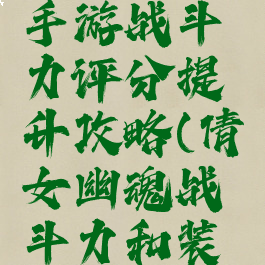 手游战斗
力评分提
升攻略(倩
女幽魂战
斗力和装